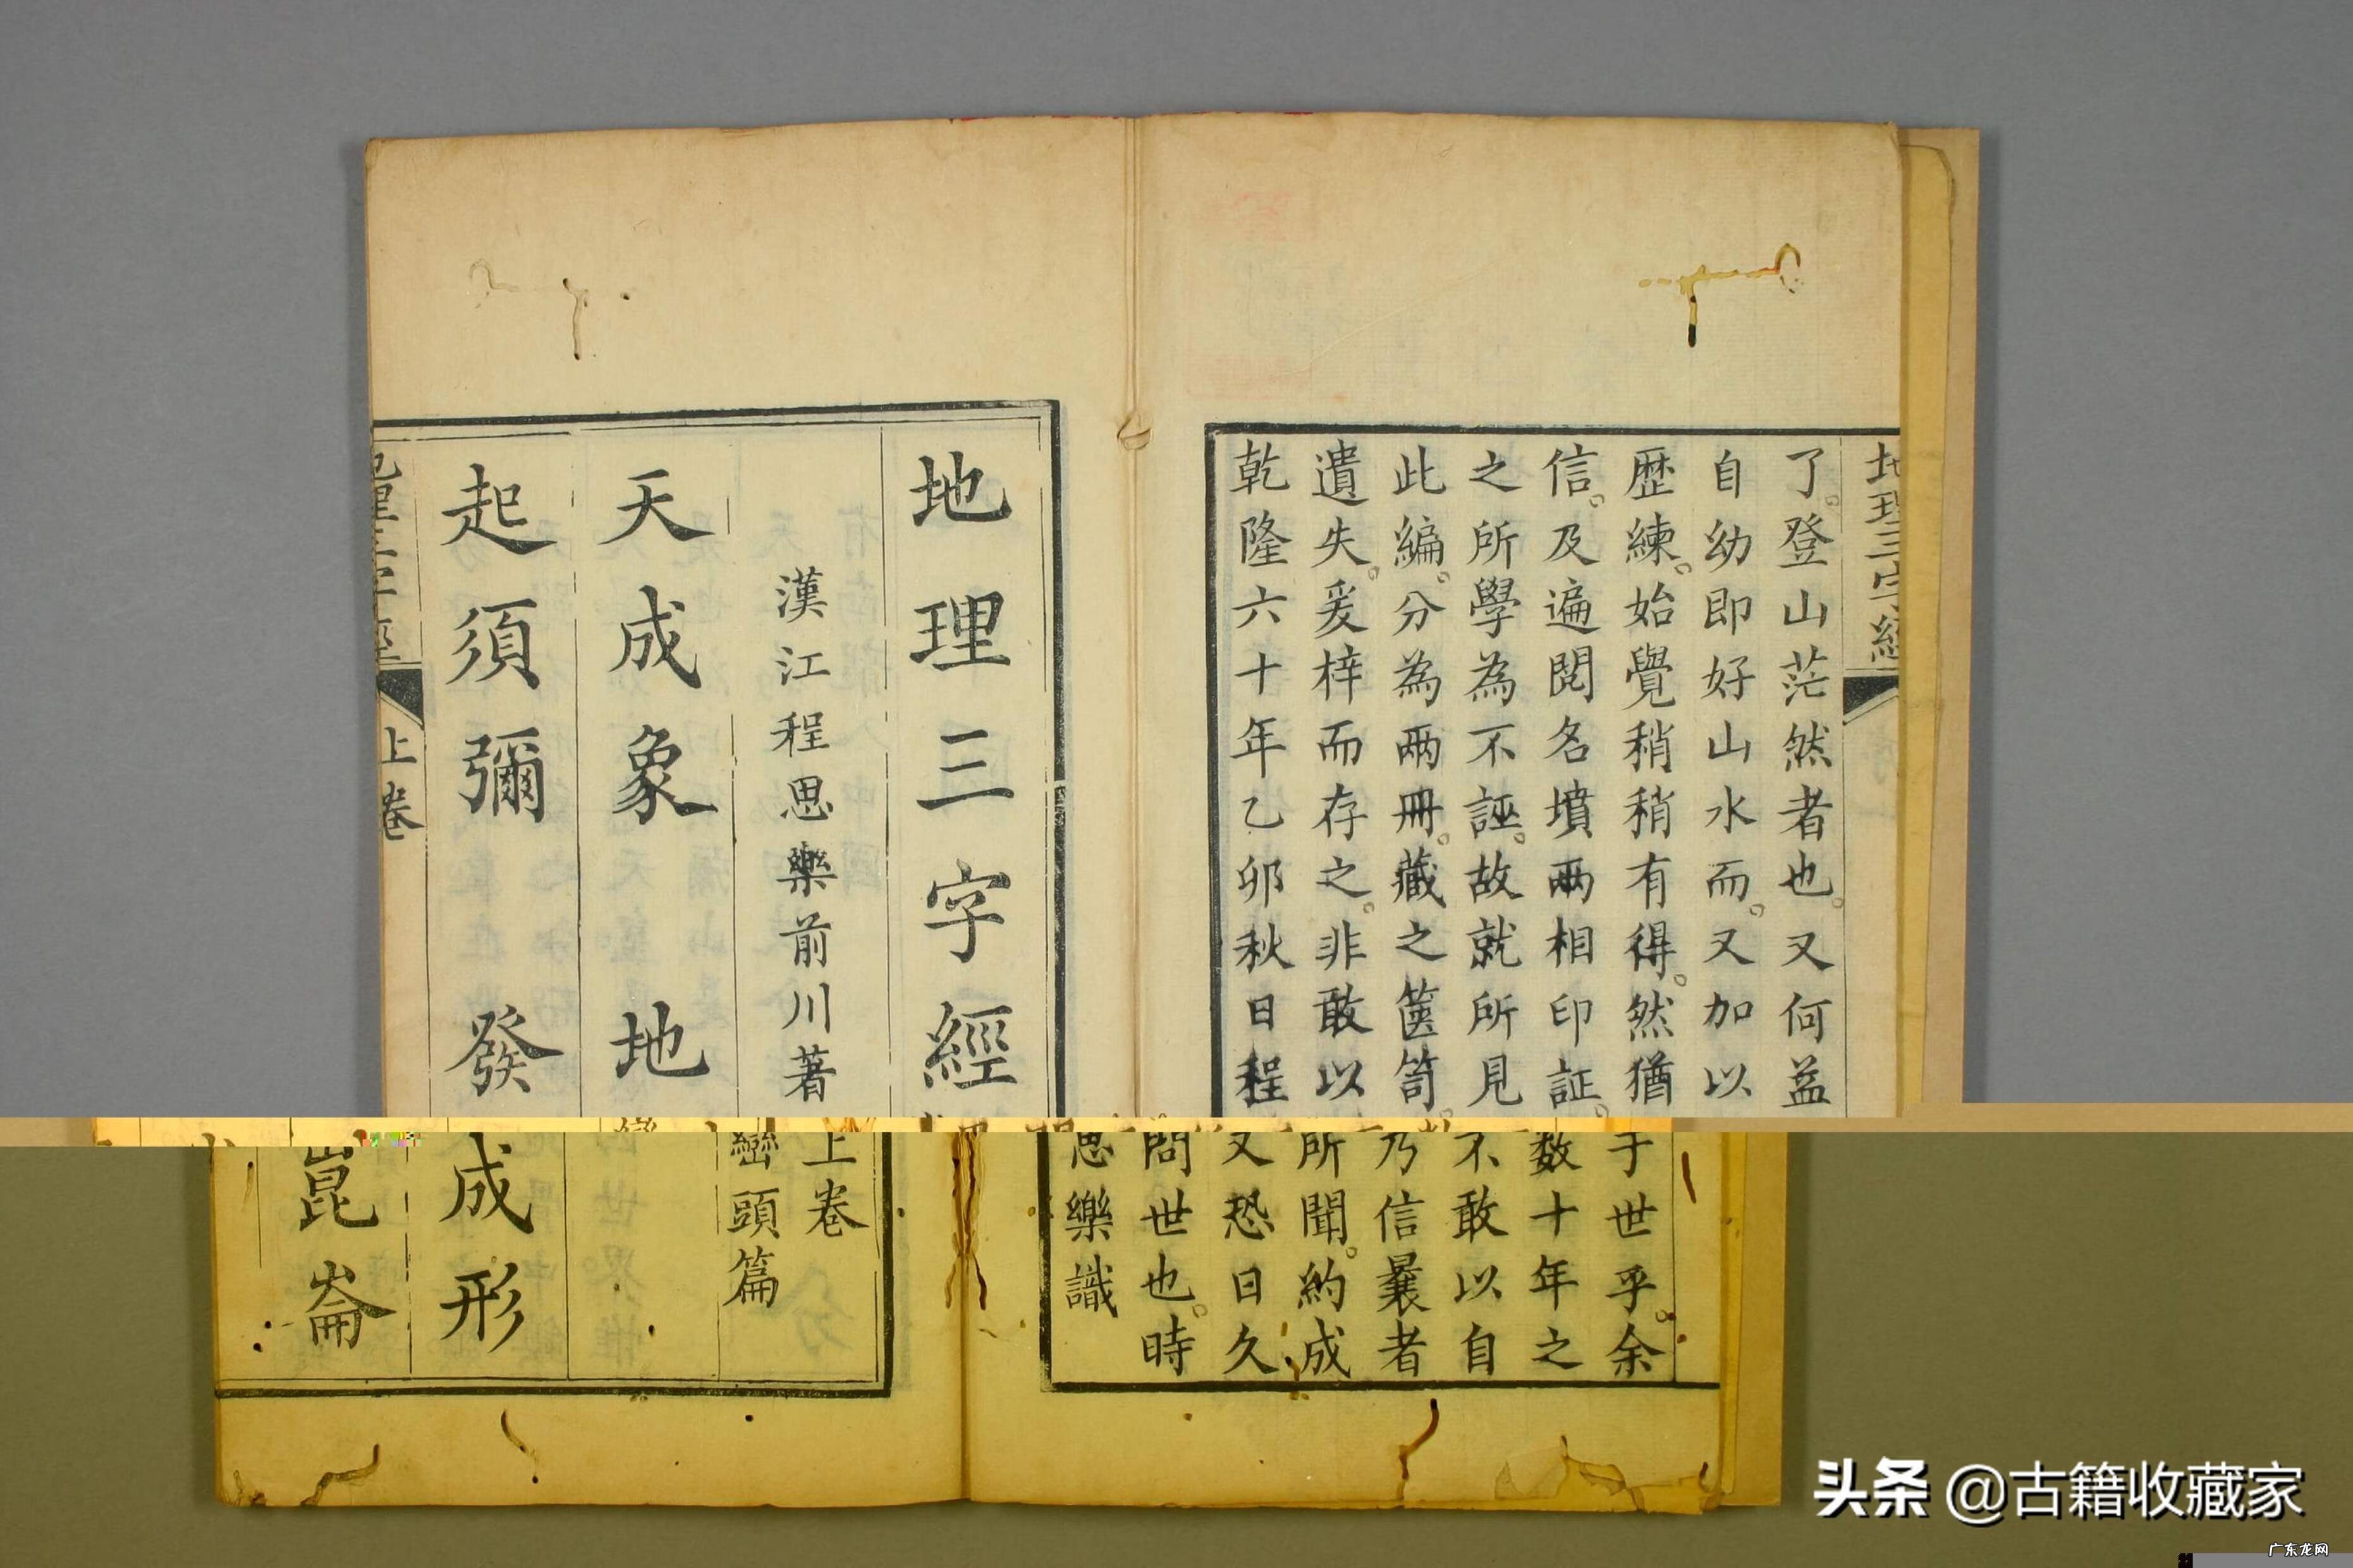 地理三字經
了。登山茫然者也。又何益于世乎。余
自幼即好山水而。又加以数十年之
歴練。始覺稍稍有得。然猶不敢以自
信。及遍閱名墳兩相印証。乃信曩者
之所學為不誣。故就所見所聞。約成
此編。分為兩冊。藏之篋笥。又恐日久
遺失。爰梓而存之。非敢以問世也。時
乾隆六十年乙卯秋日程思樂識
地理三字經
上卷
巒頭篇
漢江程思樂前川著
天成象 地成形
起須彌 發崑崙
上卷
头条 @古籍收藏家
广东龙网